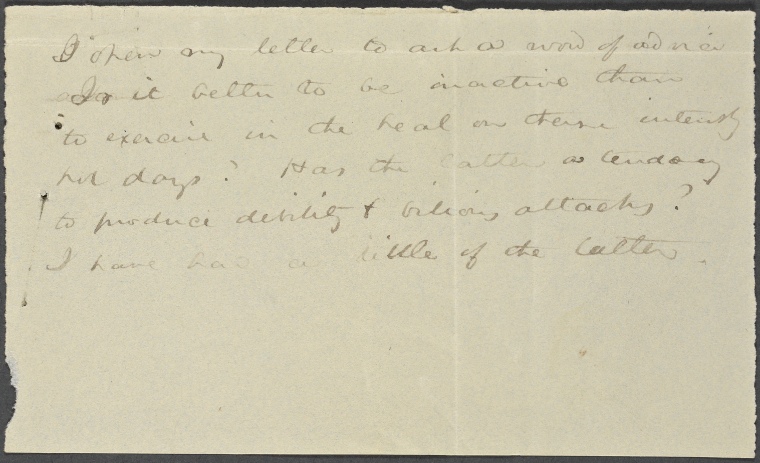 I open my letter to ask a word of advice
Is it better to be inactive than
to exercise in the heat on these intensly
hot days? Has the latter a tendency
to produce debility & bilious attacks?
I have had a little of the latter.